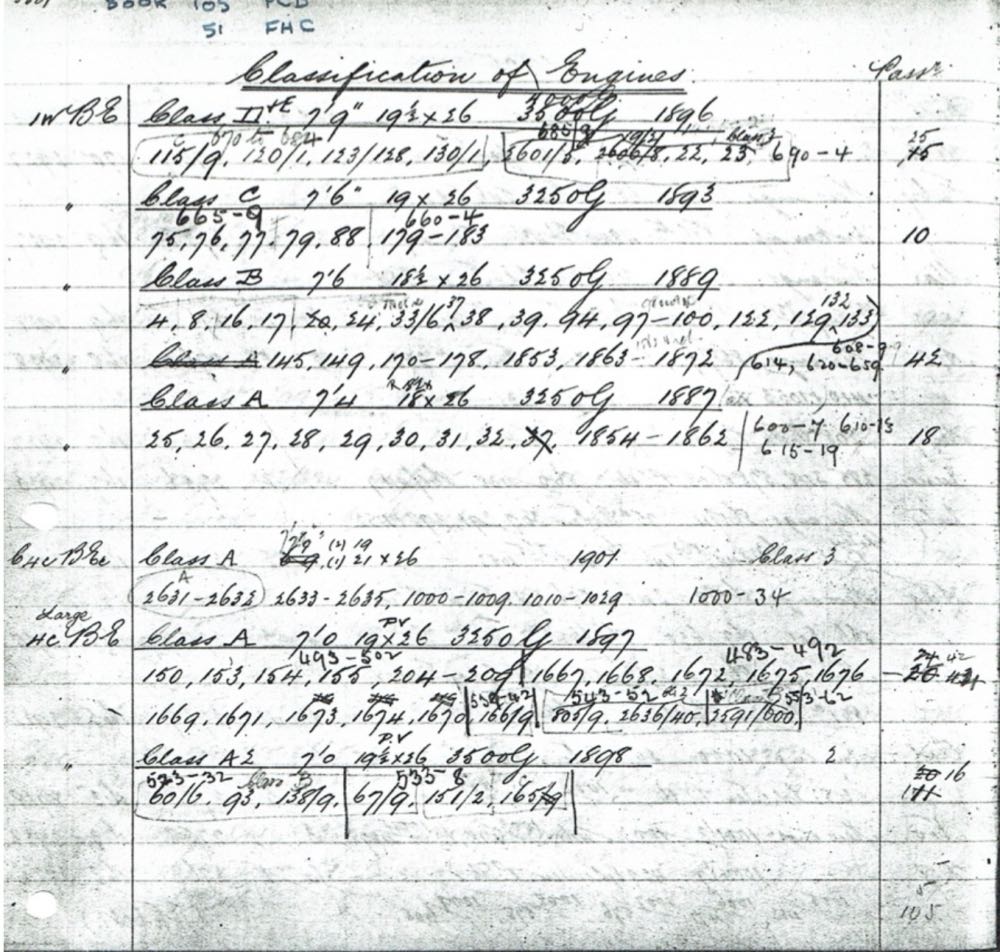 BOOK 105 FCB
51 FHC
Classification of Engines Passr
1W BE Class D +E 7'9" 19½ x 26 3500 G 1896
670 to 684 685/9 Class 3 25
115/9, 120/1, 123/128, 130/1 2601/5, 2606/8, 22, 23 690-4 75
" Class C 7'6" 19 x 26 3250 G 1893
665-9 660-4
75, 76, 77, 79, 88, 179-183 10
" Class B 7'6 18½ x 26 3250 G 1889
37 132
4, 8, 16, 17, 20, 24, 33/6, 38, 39, 94, 97-100, 122, 129, 133
608-9
" Class A 145, 149, 170-178, 1853, 1863-1872 614, 620-659 42
Class A 7'4 18 x 26 3250 G 1887
600-7 610-13
" 25, 26, 27, 28, 29, 30, 31, 32, 37, 1854-1862 615-19 18
7'9" (2) 19
Class A (1) 21 x 26 1901 Class 3
A
2631-2632 2633-2635, 1000-1009. 1010-1029 1000-34
Large PV
4C BE Class A 7'0 19 x 26 3250 G 1897
493-502 483-492 42
150, 153, 154, 155, 204-209 1667, 1668, 1672, 1675, 1676
543-52 553-62
1669, 1671, 1673, 1674, 1670 166/9 805/9, 2636/40, 2591/600
PV
" Class A2 7'0 19½ x 26 3500 G 1898 2
523-32 Class B 533-8 20 16
60/6. 93, 138/9, 67/9, 151/2, 165/9
5
105